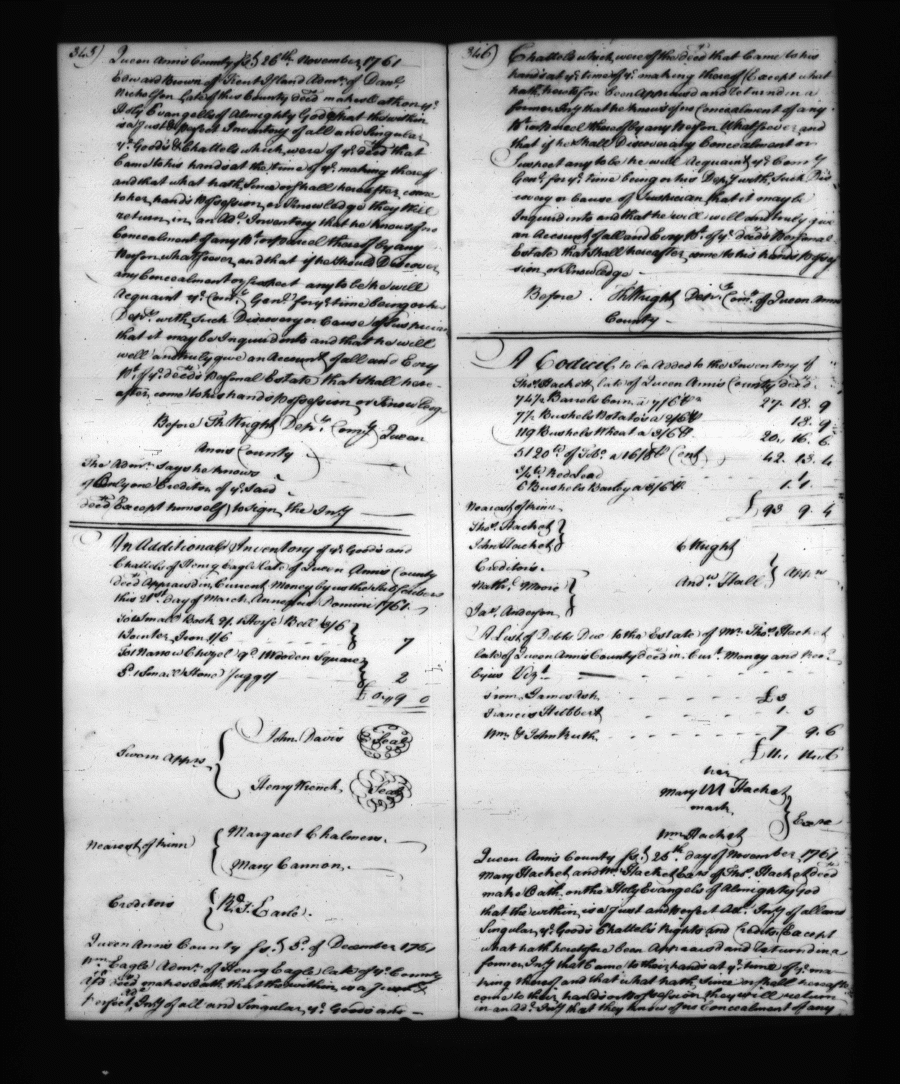 345)
Queen Anns County ss} 26th November 1761
Edward Brown of Kent Island Admr. of Danl.
Nicholson late of this County decd makes Oath on ye.
Holy Evangels of Almighty God that the within
is a Just & Perfect Inventory of all and Singular
ye. Goods & Chattels which were of ye. decd that
Came to his hands at the time of ye. making thereof
and that what hath Since or shall hereafter come
to her hands Possession or Knowledge they will
return in an Ad. Inventory that he knows of no
Concealment of any Pt. or Parcel thereof by any
Person whatsoever and that if he should Discover
any Concealment or suspect any to be he will
Acquaint ye. Comy. Genl. for ye. time being or his
Depy. with Such Discovery or Cause of Suspicion
that it may be Inquired into and that he will
well and truly give an Account of all and Every
Pt. of ye. decds Personal Estate that shall here-
after come to his hands Possession or Knowledge
Before Th Wright Depy. Comy. Queen
Anns County
The Admr. Says he knows
of Only one Creditor of ye. said
decd (Except himself) to Sign the Invy
An Additional Inventory of ye. Goods and
Chattels of Henry Eagle late of Queen Anns County
decd Appraisd in Current Money by us the Subscribers
this 21st day of March Annoque Domini 1761
To 1 Small Bask 2/. 1 Horse Bell 3/6
Pointer Iron 1/6 } 7
To 1 Narrow Chizel 9d. Wooden Square
& 1 Small Stone Jugg } 2
£ 0 " 9 0
Sworn Apprs {
John Davis Seal
Henry Wrench Seal
Nearest of kinn {
Margaret Chalmers.
Mary Cannon.
Creditors { Rd. T. Earle.
Queen Anns County ss.} 5. of December 1761
Wm. Eagle Admr. of Henry Eagle late of ye. County
afd decd makes Oath that the within is a Just &
Perfect Invy of all and Singular ye. Goods and
346)
Chattels which were of the decd that Came to his
hands at ye. time of ye. making thereof (Except what
hath heretofore been Appraisd and Returnd in a
former Invy that he knows of no Concealment of any
Pt. or Parcel thereof by any Person Whatsoever and
that if he shall Discover any Concealment or
Suspect any to be he will Acquaint ye. Comy
Genl. for ye. time being or his Depy with Such Dis-
covery or Cause of Suspicion that it may be
Inquired into and that he will well and truly give
an Account of all and Every Pt. of ye. decds Personal
Estate that shall hereafter come to his hands Posses
sion or Knowledge
Before Th Wright Depy. Comy. of Queen Anns
County
A Codicil to be Added to the Inventory of
Thos. Hackett late of Queen Anns County decd.
74½ Barrels Corn a 7/6 27. 18. 9
77. Bushels Potatoes a 18. 9
119 Bushels Wheat a 3/6 20. 16. 6
5120 lb of Tobo. a 16/8 Cent 42. 13. 4
6 Bushels Barley a 3/6 1. 1.
£ 93 9 4
Nearest of kinn
Thos. Hacket
John Hacket }
Creditors.
Nathl. Moore
Jas. Anderson }
E Wright
Andw. Hall } Apprs
A List of Debts Due to the Estate of Mr. Thos. Hacket
late of Queen Anns County decd in Curt. Money and
by us Vizt.
From James Ash £3
Francis Hebbert 1. 5
Wm. & John Ruth 7 9. 6
£11. 14. 6
her
Mary M Hacket
mark
Wm Hacket } Exrs
Queen Anns County ss.} 26th. day of November 1761
Mary Hacket and Wm. Hacket Exrs of Thos. Hacket decd
make Oath on the Holy Evangels of Almighty God
that the within is a Just and Perfect Ad. Invy of all and
Singular ye. Goods Chattels Rights and Credits (Except
what hath heretofore been Appraisd and Returnd in a
former Invy that Came to their hands at ye. time of ye. ma-
king thereof and that what hath Since or shall hereafter
come to their hands or Possession they will return
in an Ad. Invy that they know of no Concealment of any